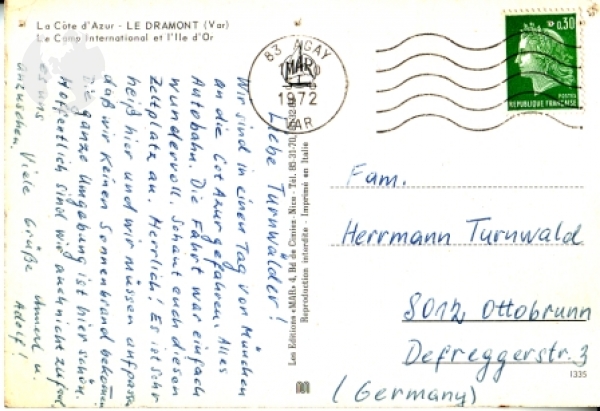 La Côte d'Azur - LE DRAMONT (Var)
Le Camp International et l'Ile d'Or
Liebe Turnwälder!
Wir sind in einem Tag von München
an die Cot Azur gefahren. Alles
Autobahn. Die Fahrt war einfach
wundervoll. Schaut euch diesen
Zeltplatz an. Herrlich! Es ist sehr
heiß hier und wir müssen aufpassen
daß wir keinen Sonnenbrand bekommen
Die ganze Umgebung ist hier schön.
Hoffentlich sind wir auch nicht zu faul
es uns
anzusehen. Viele Grüße
u.
Adolf!
Les Editions «MAR» 4, Bd de Cimiez - Nice - Tél. 85-31-70,
Reproduction interdite - Imprimé en Italie
83 AGAY
MAR
1972
VAR
0,30
POSTES
REPUBLIQUE FRANÇAISE
Fam.
Herrmann Turnwald
8012 Ottobrunn
Defreggerstr. 3
(Germany)
1335